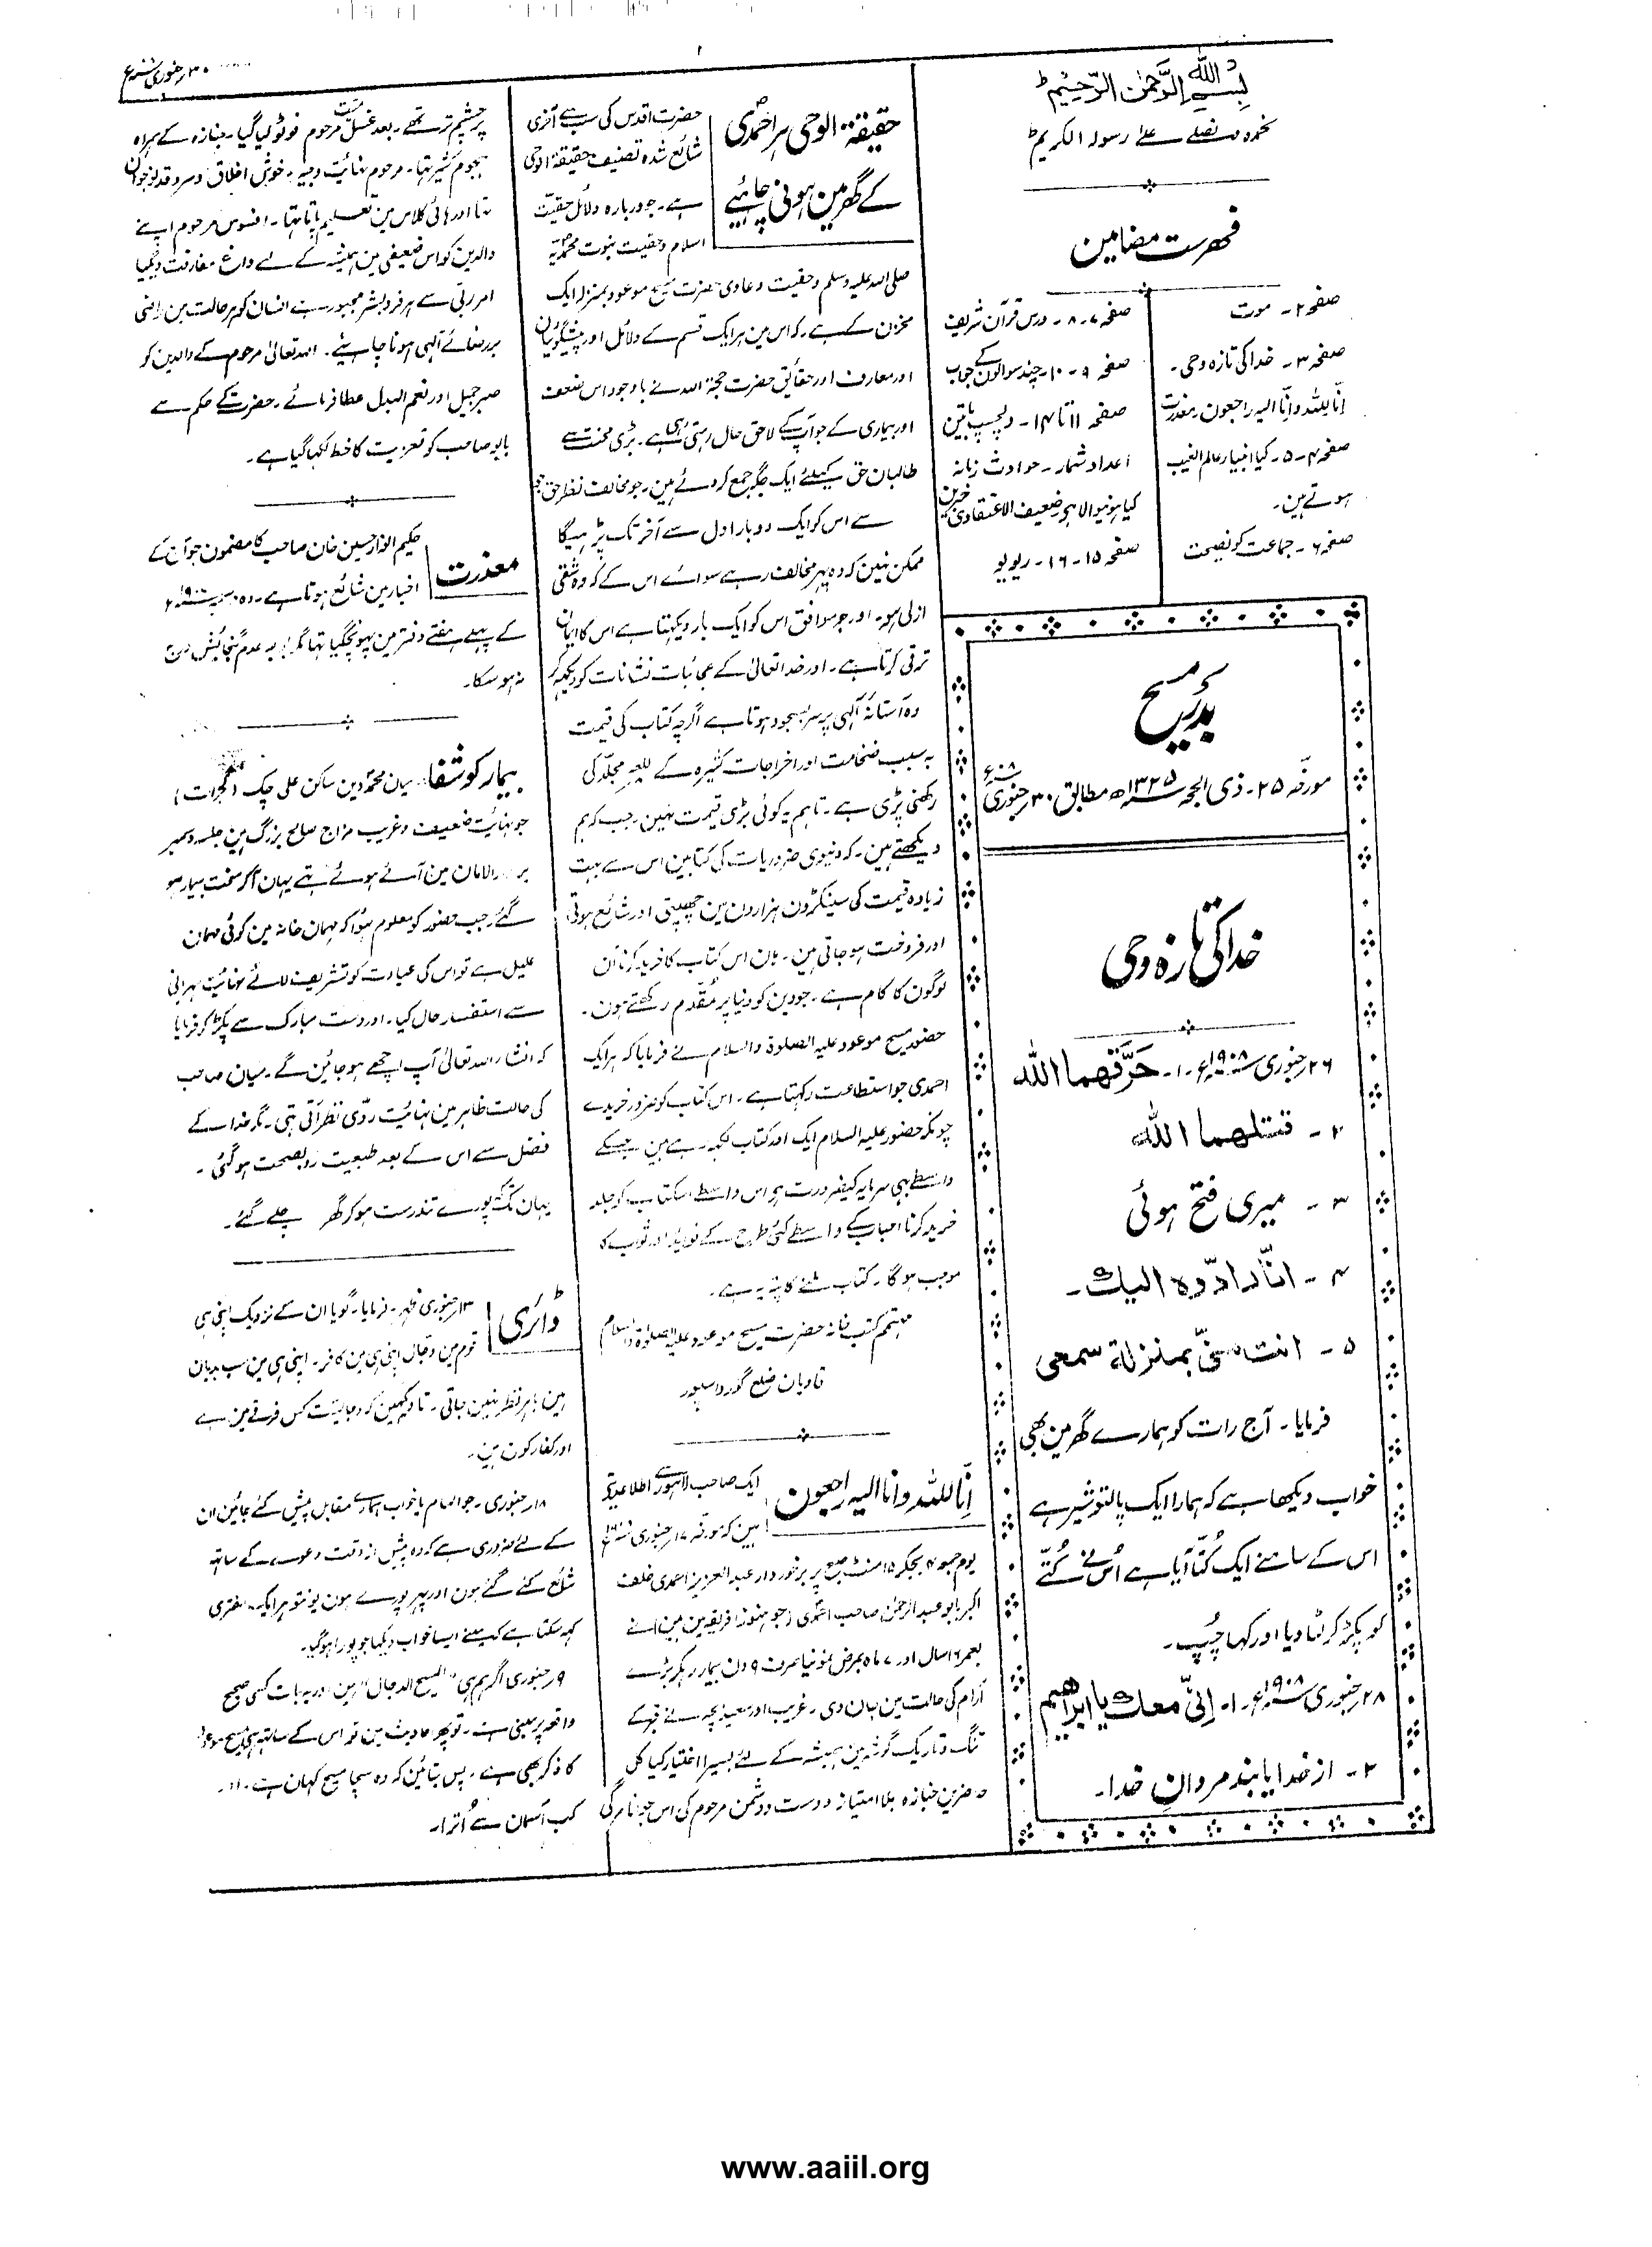 ۳۰ جنوری
بِسْمِ اللهِ الرَّحْمٰنِ الرَّحِيْمِ
نحمدہ و نصلے علےٰ رسولہ الکریم
فہرست مضامین
صفحہ ۲ - موت
صفحہ ۳ - خدا کی تازہ وحی -
انّا للہ وانّا الیہ راجعون - معذرت
صفحہ ۴ - ۵ - کیا انبیاء عالم الغیب
ہوتے ہین -
صفحہ ۶ - جماعت کو نصیحت
صفحہ ۷ - ۸ - درس قرآن شریف
صفحہ ۹ - ۱۰ - چند سوالون کے جواب
صفحہ ۱۱ تا ۱۴ - دلچسپ باتین
اعداد شمار - حوادث زمانہ
کیا ہونیوالا ہے ضعیف الاعتقادی
صفحہ ۱۵ - ۱۶ - ریویو
بدر مسیح
مورخہ ۲۵ - ذی الحجہ ۱۳۲۵ھ مطابق ۳۰ جنوری ۰۸ء
خدا کی تازہ وحی
۲۶ جنوری ۱۹۰۸ء - ۱ - حَرَّقَهما الله
۲ - قتلهما الله
۳ - میری فتح ہوئی
۴ - انّا رادّوہ الیك -
۵ - انت منّی بمنزلة سمعی
فرمایا - آج رات کو ہمارے گھر مین بھی
خواب دیکھا ہے کہ ہمارا ایک پالتو شیر ہے
اس کے سامنے ایک کُتّا آیا ہے اُس نے کُتّے
کو پکڑ کر لٹا دیا اور کہا چُپ -
۲۸ جنوری ۱۹۰۸ء - ۱ - اِنّی معك یا ابراهیم
۲ - از خدا یابند مردانِ خدا -
حقیقۃ الوحی ہر احمدی
کے گھر مین ہونی چاہئیے
حضرت اقدس کی سب سے آخری
شائع شدہ تصنیف حقیقۃ الوحی
ہے - جو دربارہ دلائل حقیت
اسلام و حقیت نبوت محمدیہ
صلی اللہ علیہ وسلم و حقیت دعاوی حضرت مسیح موعود بمنزلہ ایک
مخزن کے ہے - کہ اس مین ہر ایک قسم کے دلائل اور پیشگوئیان
اور معارف اور حقائق حضرت حجۃ اللہ نے باوجود اس ضعف
اور بیماری کے جو آپ کے لاحق حال رہتی ہے - بڑی محنت سے
طالبان حق کیلئے ایک جگہ جمع کر دئے ہین - جو مخالف نظر حق
سے اس کو ایک دو بار اول سے آخر تک پڑہیگا
ممکن نہین کہ وہ پھر مخالف رہے سوائے اس کے کہ وہ شقی
ازلی ہو - اور جو موافق اس کو ایک بار دیکھتا ہے اس کا ایمان
ترقی کرتا ہے - اور خدا تعالیٰ کے عجائبات نشانات کو دیکھ کر
وہ آستانہ آلہی پر سر بسجود ہوتا ہے اگرچہ کتاب کی قیمت
بہ سبب ضخامت اور اخراجات کثیرہ کے مجلد کی
رکھنی پڑی ہے - تاہم یہ کوئی بڑی قیمت نہین - جب کہ ہم
دیکھتے ہین - کہ دنیوی ضروریات کی کتابین اس سے بہت
زیادہ قیمت کی سینکڑون ہزارون مین چھپتی اور شائع ہوتی
اور فروخت ہو جاتی ہین - ہان اس کتاب کا خرید کرنا ان
لوگون کا کام ہے - جو دین کو دنیا پر مُقدم رکھتے ہون -
حضور مسیح موعود علیہ الصلوۃ والسلام نے فرمایا کہ ہر ایک
احمدی جو استطاعت رکہتا ہے - اس کتاب کو ضرور خریدے
چونکہ حضور علیہ السلام ایک اور کتاب لکہہ رہے ہین جسکے
واسطے بہی سرمایہ کیضرورت ہے اس واسطے اسکتاب کو جلد
خرید کرنا احباب کے واسطے کئی طرح کے فوائد اور ثواب کا
موجب ہو گا - کتاب ملنے کا پتہ یہ ہے -
مہتمم کتب خانہ حضرت مسیح موعود علیہ الصلوۃ والسلام
قادیان ضلع گورداسپور
اِنّا للّٰہ وانا الیہ راجعون
ایک صاحب لاہور سے اطلاع دیتے
ہین کہ مورخہ ۱۷ جنوری
یوم جمعہ ۴ بجکر ۱۵ منٹ صبح پر برخوردار عبدالعزیز احمدی خلف
اکبر بابو عبدالرحمٰن صاحب احمدی (جو ہنوز افریقہ مین ہین) نے
بعمر ۱۶ سال اور ۷ ماہ بمرض نمونیا صرف ۹ دن بیمار رہکر بڑے
آرام کی حالت مین جان دی - غریب اور سعید بچہ نے قبر کے
تنگ و تاریک گوشہ مین ہمیشہ کے لئے بسیرا اختیار کیا کل
حاضرین جنازہ بلا امتیاز دوست و دشمن مرحوم کی اس جوانا مرگی
پر چشم تر تھے - بعد غسل میت مرحوم فوٹو لیا گیا - جنازہ کے ہمراہ
ہجوم کثیر تہا - مرحوم نہائت وجیہہ - خوش اخلاق و سرو قد نوجوان
تہا اور ہائی کلاس مین تعلیم پاتا تہا - افسوس مرحوم اپنے
والدین کو اس ضعیفی مین ہمیشہ کے لئے داغ مفارقت دیگیا
امر ربی سے ہر فرد بشر مجبور ہے انسان کو ہر حالت مین راضی
برضائے آلہی ہونا چاہئیے - اللہ تعالیٰ مرحوم کے والدین کو
صبر جمیل اور نعم البدل عطا فرمائے - حضرت کے حکم سے
بابو صاحب کو تعزیت کا خط لکہا گیا ہے -
معذرت
حکیم انوار حسین خان صاحب کا مضمون جو آج کے
اخبار مین شائع ہوتا ہے - وہ
کے پہلے ہفتے دفتر مین پہونچگیا تہا مگر بہ عدم گنجائش درج
نہ ہو سکا -
بیمار کو شفا میان محمد دین ساکن علی چک (گجرات)
جو نہائت ضعیف و غریب مزاج صالح بزرگ ہین جلسہ دسمبر
پر دارالامان مین آئے ہوئے تہے یہان آکر سخت بیمار ہو
گئے - جب حضور کو معلوم ہوُا کہ مہمان خانہ مین کوئی مہمان
علیل ہے تو اس کی عیادت کو تشریف لائے نہائت مہربانی
سے استفسار حال کیا - اور دست مبارک سے پکڑ کر فرمایا
کہ انشاء اللہ تعالیٰ آپ اچھے ہو جائین گے - میان صاحب
کی حالت ظاہر مین نہائت ردّی نظر آتی تہی - مگر خدا کے
فضل سے اس کے بعد طبیعت رو بصحت ہو گئی -
یہان تک کہ پورے تندرست ہو کر گھر چلے گئے -
ڈائری
۱۳ جنوری ظہر - فرمایا - گویا ان کے نزدیک اپنی ہی
قوم مین دجال اپنی ہی مین کافر - اپنی ہی مین سب بدیان
ہین باہر نظر نہین جاتی - تا دیکہین کہ دجالیت کس فرقے مین ہے
اور کفار کون ہین -
۱۸ جنوری - جو الہام یا خواب ہمارے مقابل پیش کئے جائین ان
کے لئے ضروری ہے کہ وہ پیش از وقت دعوے کے ساتہہ
شائع کئے گئے ہون اور پہر پورے ہون یونتو ہر ایک مفتری
کہہ سکتا ہے کہ مینے ایسا خواب دیکہا جو پورا ہو گیا -
۹ جنوری اگر ہم ہی "المسیح الدجال" ہین اور یہ بات کسی صحیح
واقعہ پر مبنی ہے - تو پھر احادیث مین تو اس کے ساتہہ ہی مسیح موعود
کا ذکر بھی ہے - پس بتائین کہ وہ سچا مسیح کہان ہے - اور
کب آسمان سے اُترا -
www.aaiil.org